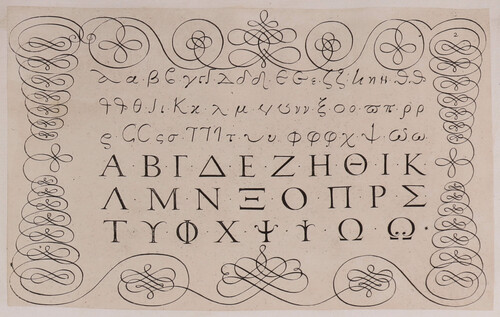 α α β ϐ γ Γ Δ δ δ Ε ε ε ζ ζ Η η η θ ϑ
θ θ θ ι ι Κ κ λ μ ν ξ ο ο ϖ π ρ ρ
ς C C ς σ Τ Τ Ι τ υ υ φ φ φ χ ψ ω ω
Α Β Γ Δ Ε Ζ Η Θ Ι Κ
Λ Μ Ν Ξ Ο Π Ρ Σ
Τ Υ Φ Χ Ψ Υ Ω Ω